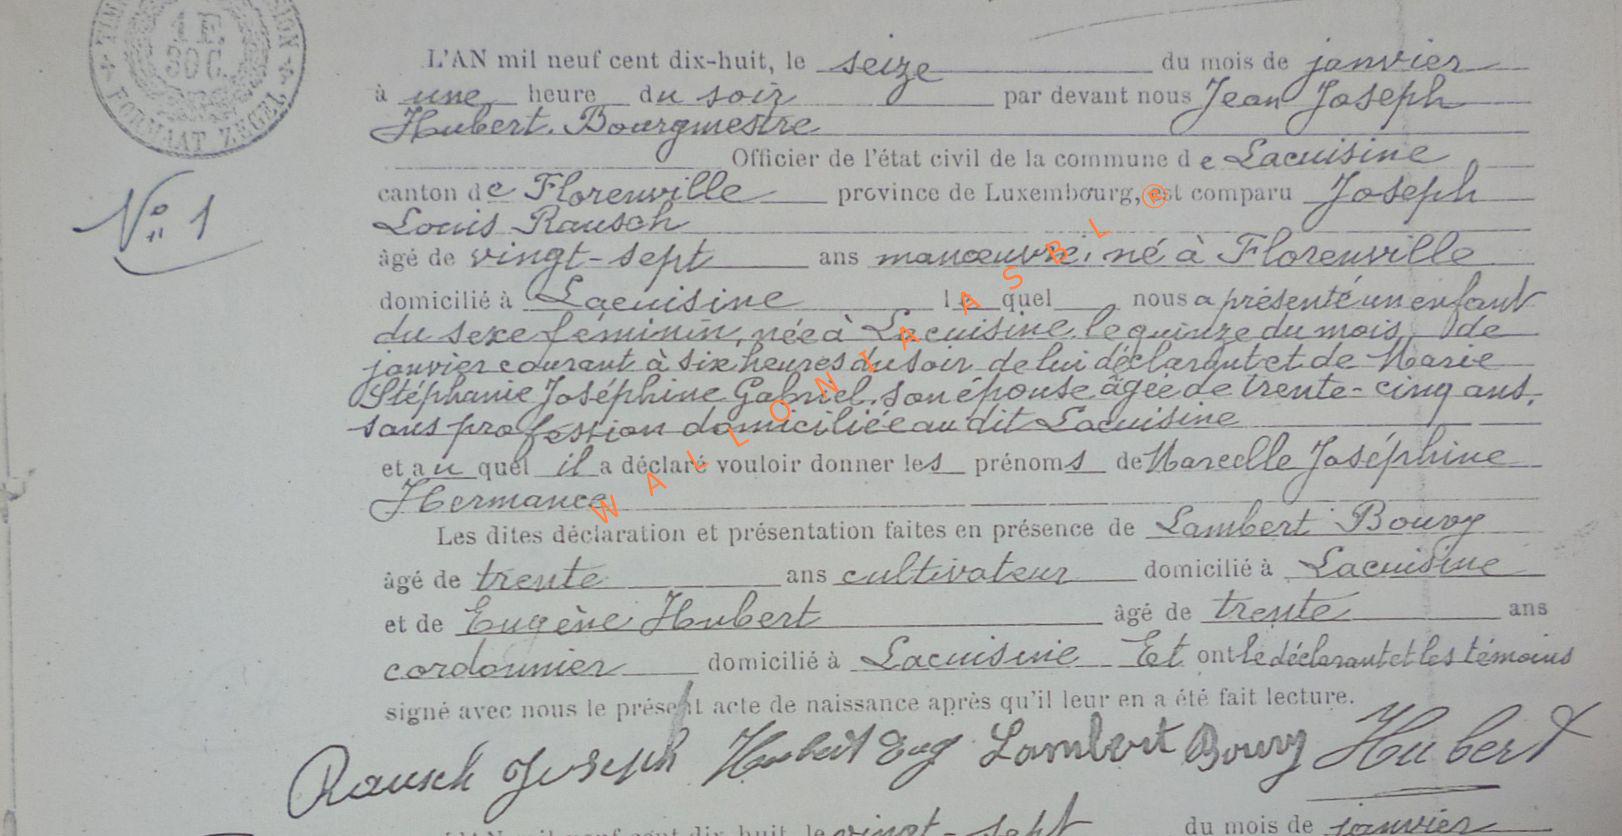 1 F.
30 C.
FORMAAT ZEGEL
L'AN mil neuf cent dix-huit, le seize du mois de janvier
à une heure du soir par devant nous Jean Joseph
Hubert. Bourgmestre
Officier de l'état civil de la commune de Lacuisine
canton de Florenville province de Luxembourg, est comparu Joseph
Nº 1
Louis Rausch
âgé de vingt-sept ans manœuvre, né à Florenville
domicilié à Lacuisine lequel nous a présenté un enfant
du sexe féminin, née à Lacuisine le quinze du mois de
janvier courant à six heures du soir de lui déclarant et de Marie
Stéphanie Joséphine Gabriel, son épouse âgée de trente-cinq ans,
sans profession domiciliée au dit Lacuisine
et auquel il a déclaré vouloir donner les prénoms de Marcelle Joséphine
Hermance
Les dites déclaration et présentation faites en présence de Lambert Bouvy
âgé de trente ans cultivateur domicilié à Lacuisine
et de Eugène Hubert âgé de trente ans
cordonnier domicilié à Lacuisine Et ont le déclarant et les témoins
signé avec nous le présent acte de naissance après qu'il leur en a été fait lecture.
Rausch Joseph Hubert Eug Lambert Bouvy Hubert
L'AN mil neuf cent dix-huit, le vingt-sept du mois de janvier
WALLONIA ASBL ®